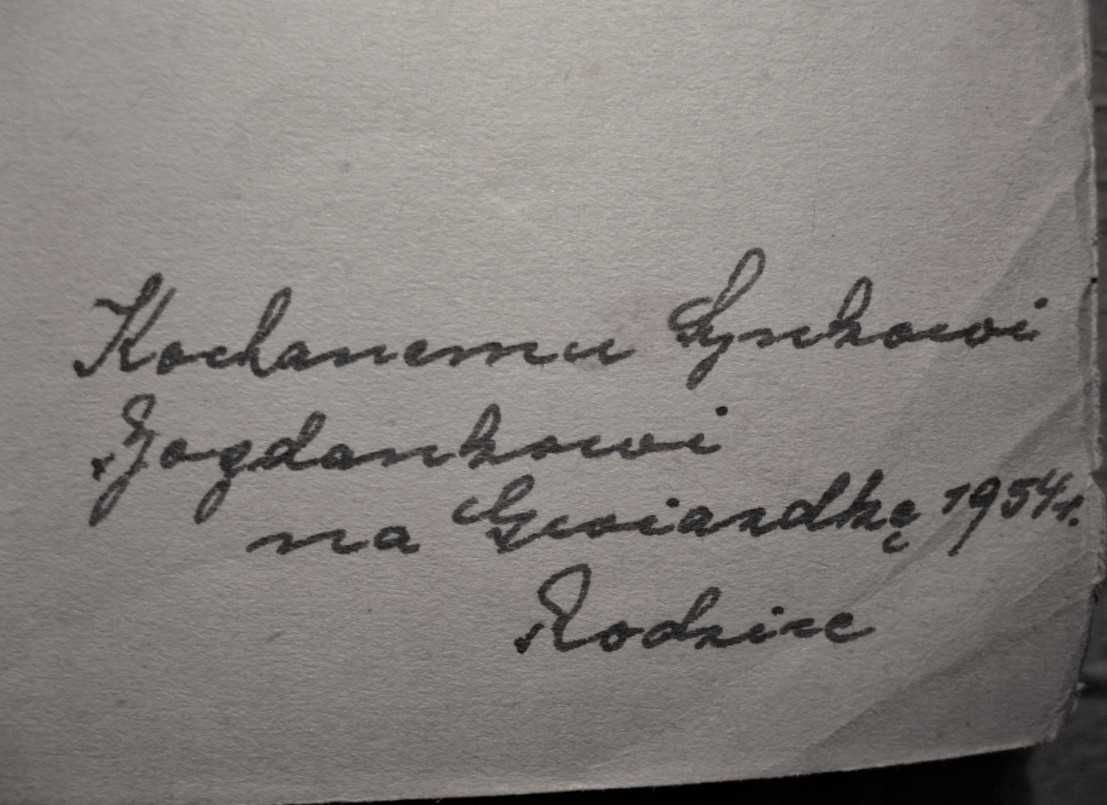 Kochanemu Synkowi
Bogdankowi
na Gwiazdkę 1954 r.
Rodzice